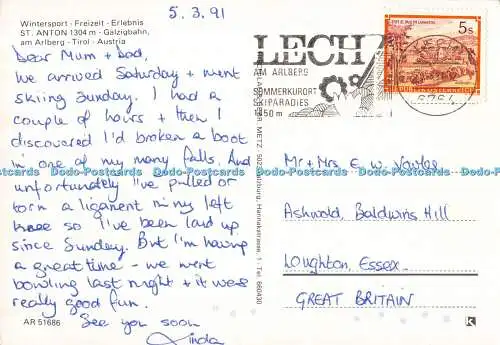 5.3.91
Wintersport - Freizeit - Erlebnis
ST. ANTON 1304 m - Galzigbahn,
am Arlberg - Tirol - Austria
Dear Mum + Dad,
We arrived Saturday + went
skiing Sunday. I had a
couple of hours + then I
discovered I'd broken a boot
in one of my many falls. And
unfortunately I've pulled or
torn a ligament in my left
knee so I've been laid up
since Sunday. But I'm having
a great time - we went
bowling last night + it was
really good fun.
See you soon
Linda
AR 51686
LECH
AM ARLBERG
SOMMERKURORT
SKIPARADIES
1450 m
5 s
REPUBLIK ÖSTERREICH
6764
Mr + Mrs E. W.
Ashwold, Baldwins Hill
Loughton, Essex.
GREAT BRITAIN
Dodo-Postcards Dodo-Postcards Dodo-Postcards Dodo-Postcards Dodo-Postcards Dodo-Postcards
K